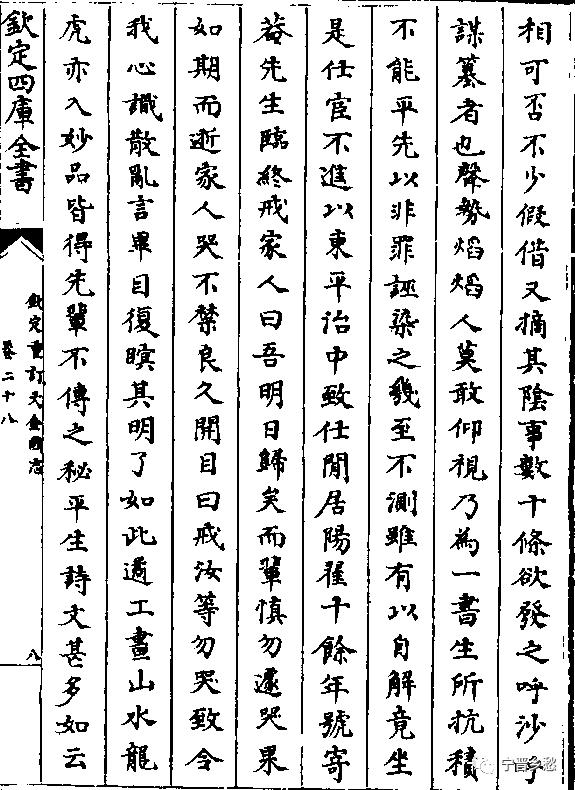 相可否不少假借又摘其陰事數十條欲發之呼沙乎
謀簒者也聲勢熖熖人莫敢仰視乃為一書生所抗積
不能平先以非罪誣染之幾至不測雖有以自解竟坐
是仕宦不進以東平治中致仕閒居陽翟十餘年號寄
菴先生臨終戒家人曰吾明日歸矣而輩慎勿遽哭果
如期而逝家人哭不禁良久開目曰戒汝等勿哭致令
我心識散亂言畢目復瞑其明了如此遹工畫山水龍
虎亦入妙品皆得先輩不傳之秘平生詩文甚多如云
欽定四庫全書
欽定重訂大金國志
卷二十八
八
宁晋乡愁